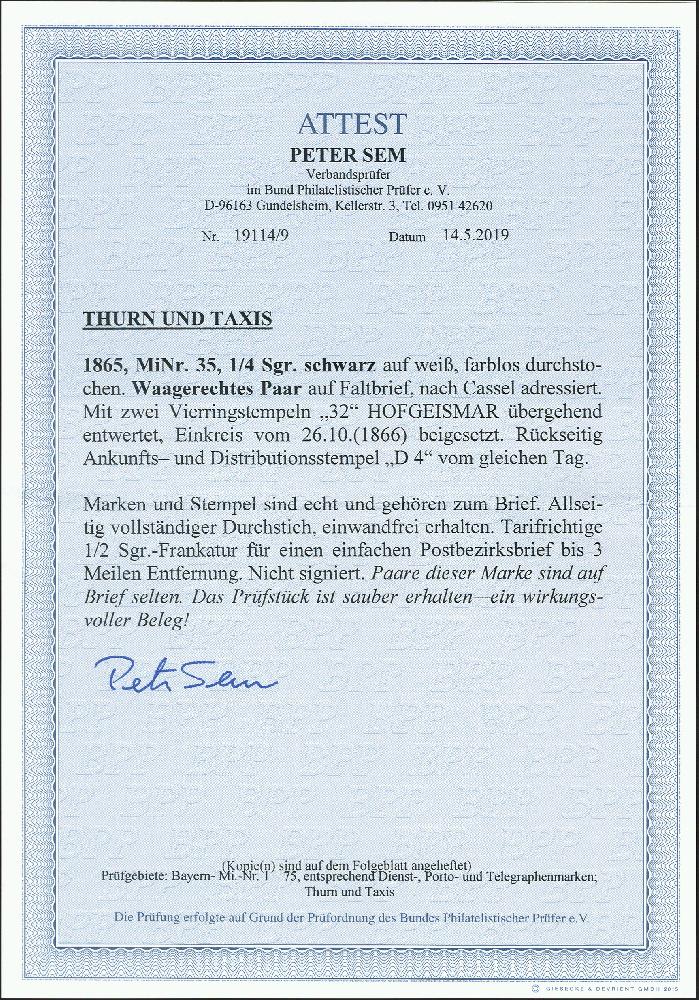 ATTEST
PETER SEM
Verbandsprüfer
im Bund Philatelistischer Prüfer e. V.
D-96163 Gundelsheim, Kellerstr. 3, Tel. 0951 42620
Nr. 19114/9 Datum 14.5.2019
THURN UND TAXIS
1865, MiNr. 35, 1/4 Sgr. schwarz auf weiß, farblos durchsto-
chen. Waagerechtes Paar auf Faltbrief, nach Cassel adressiert.
Mit zwei Vierringstempeln „32“ HOFGEISMAR übergehend
entwertet, Einkreis vom 26.10.(1866) beigesetzt. Rückseitig
Ankunfts– und Distributionsstempel „D 4“ vom gleichen Tag.
Marken und Stempel sind echt und gehören zum Brief. Allsei-
tig vollständiger Durchstich, einwandfrei erhalten. Tarifrichtige
1/2 Sgr.-Frankatur für einen einfachen Postbezirksbrief bis 3
Meilen Entfernung. Nicht signiert. Paare dieser Marke sind auf
Brief selten. Das Prüfstück ist sauber erhalten—ein wirkungs-
voller Beleg!
Peter Sem
(Kopie(n) sind auf dem Folgeblatt angeheftet)
Prüfgebiete: Bayern- Mi.-Nr. 1 75, entsprechend Dienst-, Porto- und Telegraphenmarken;
Thurn und Taxis
Die Prüfung erfolgte auf Grund der Prüfordnung des Bundes Philatelistischer Prüfer e.V.
© GIESECKE & DEVRIENT GMBH 2015